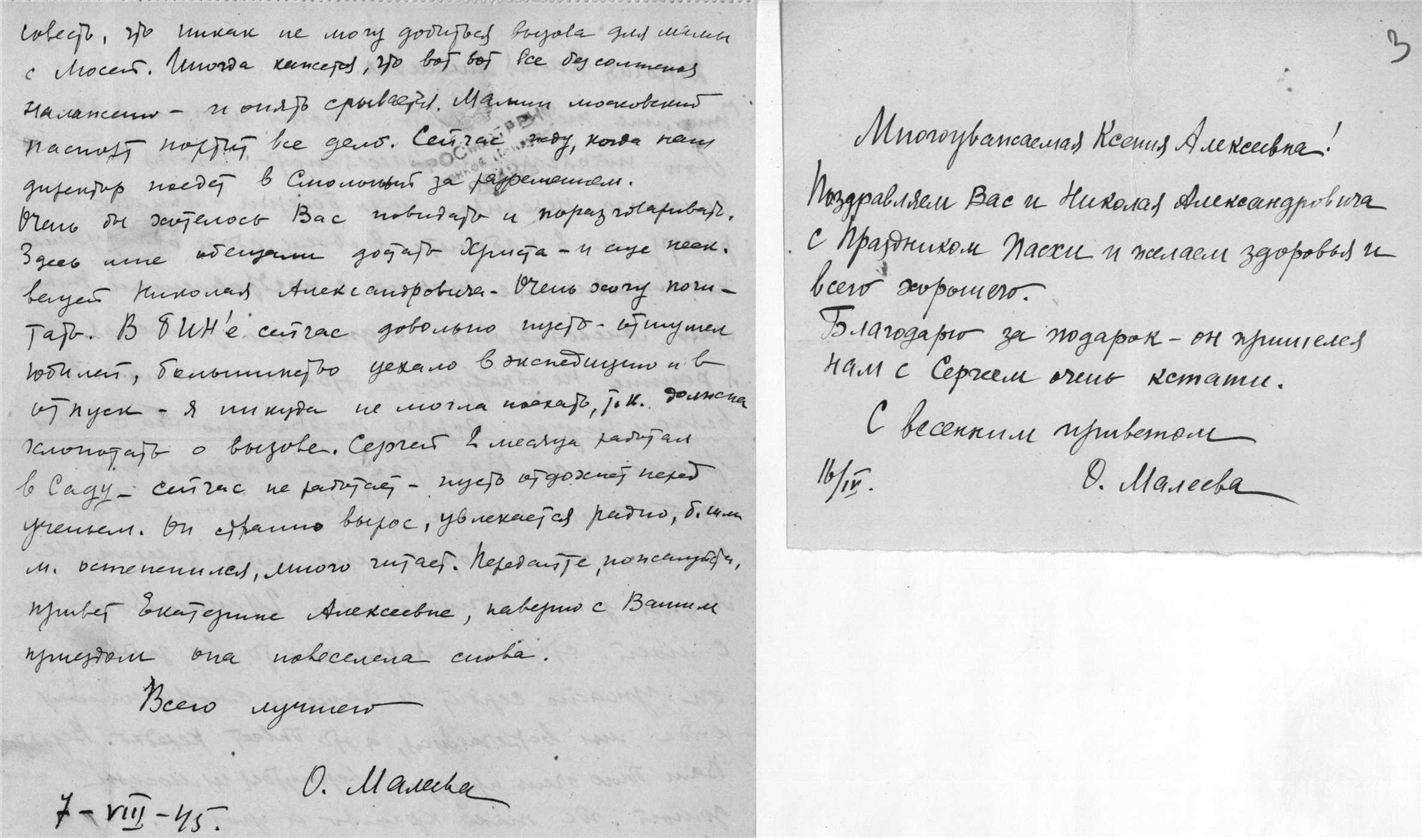 совесть, что никак не могу добиться вызова для мамы
с Мосей. Иногда кажется, что вот вот все без сомнения
налажено – и опять срывается. Мамин московский
паспорт портит все дело. Сейчас жду, когда наш
директор поедет в Смольный за разрешением.
Очень бы хотелось Вас повидать и поразговаривать.
Здесь мне обещали достать Христа – и еще неск.
вещей Николая Александровича – Очень хочу почи–
тать. В БИН'е сейчас довольно пусто – отшумел
юбилей, большинство уехало в экспедицию и в
отпуск – я никуда не могла поехать, т.к. должна
хлопотать о вызове. Сергей 2 месяца работал
в Саду – сейчас не работает – пусть отдохнет перед
ученьем. Он странно вырос, увлекается радио, б. или
м. остепенился, много читает. Передайте, пожалуйста,
привет Екатерине Алексеевне, наверно с Вашим
приездом она повеселела снова.
Всего лучшего
О. Малеева
7 – VIII – 45.
3
Многоуважаемая Ксения Алексеевна!
Поздравляем Вас и Николая Александровича
с Праздником Пасхи и желаем здоровья и
всего хорошего.
Благодарю за подарок – он пришелся
нам с Сергеем очень кстати.
С весенним приветом
16/IV.
О. Малеева